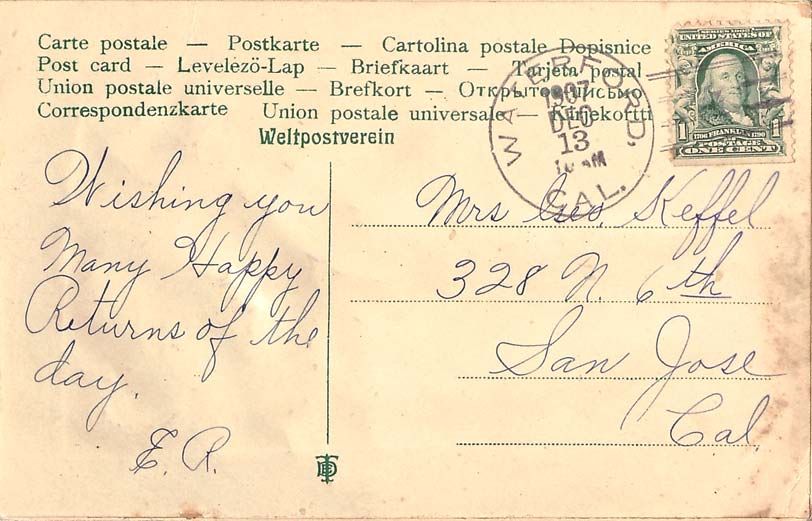 Carte postale — Postkarte — Cartolina postale Dopisnice
Post card — Levelező-Lap — Briefkaart — Tarjeta postal
Union postale universelle — Brefkort — Открытое письмо
Correspondenzkarte Union postale universale — Kirjekortti
Weltpostverein
SERIES 1902
UNITED STATES OF
AMERICA
1 1706 FRANKLIN 1790 1
POSTAGE
ONE CENT
WATERFORD,
1907
DEC
13
10 AM
CAL.
Wishing you
Many Happy
Returns of the
day.
E. R.
Mrs Geo. Keffel
328 N. 6th
San Jose
Cal.